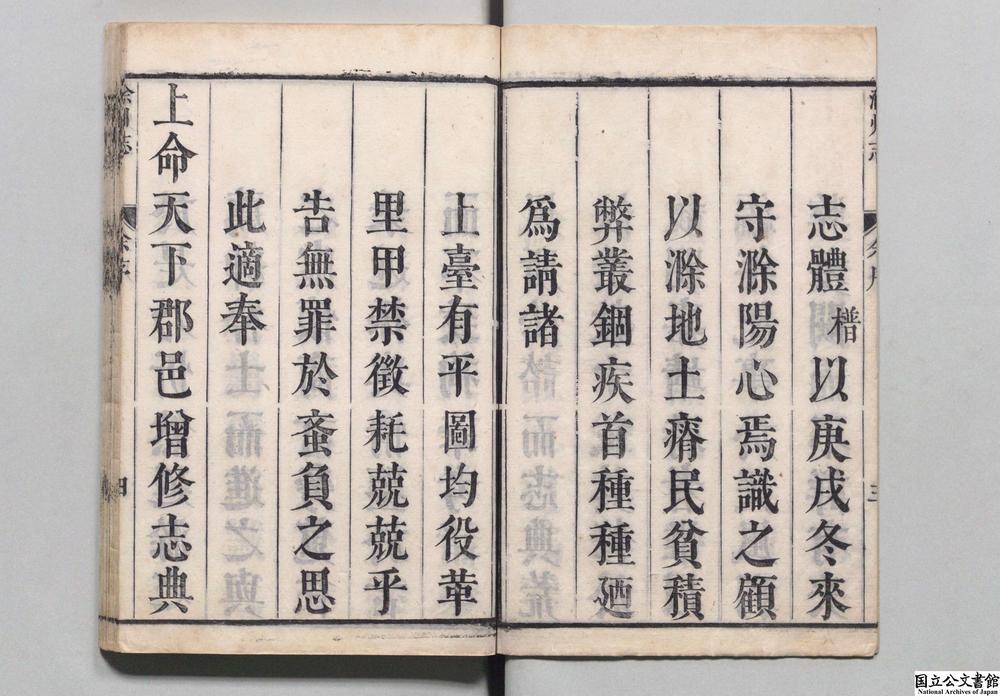 志體櫓以庚戌冬來
守滁陽心焉識之顧
以滁地土瘠民貧積
弊叢錮疾首種種廼
爲請諸
上臺有平圖均役革
里甲禁徵耗兢兢乎
告無罪於蚉負之思
此適奉
上命天下郡邑增修志典
三
四
国立公文書館
National Archives of Japan